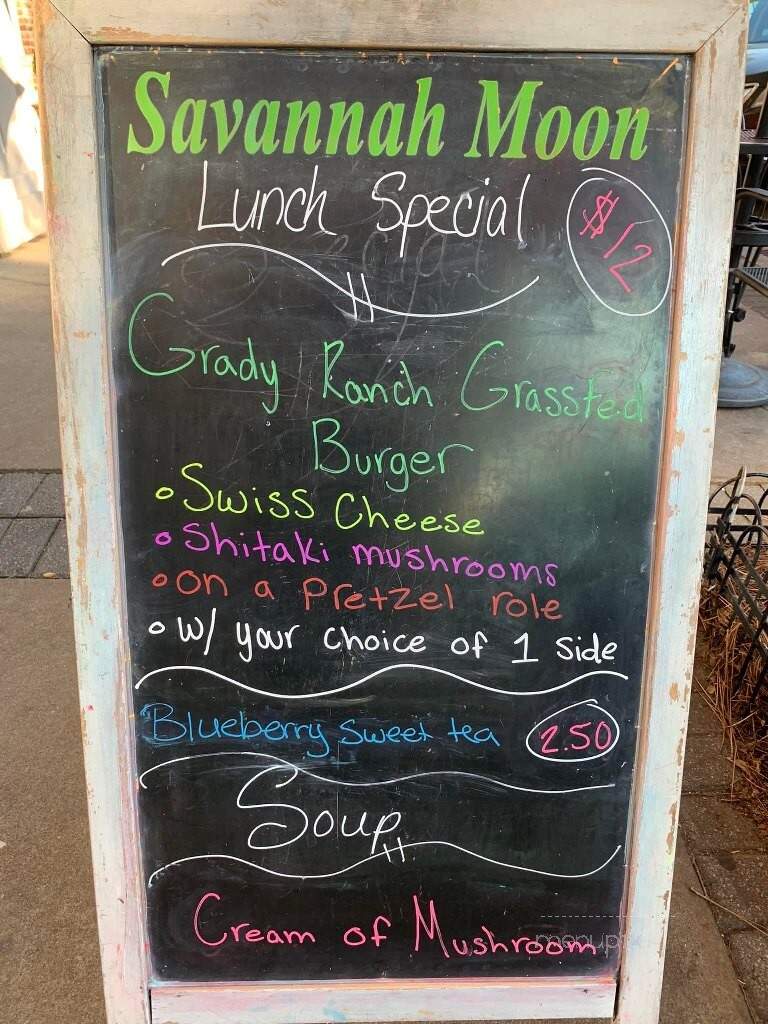 Savannah Moon
Lunch Special $12
Grady Ranch Grassfed
Burger
• Swiss Cheese
• Shitaki mushrooms
• on a Pretzel role
• w/ your choice of 1 side
Blueberry sweet tea 2.50
Soup
Cream of Mushroom